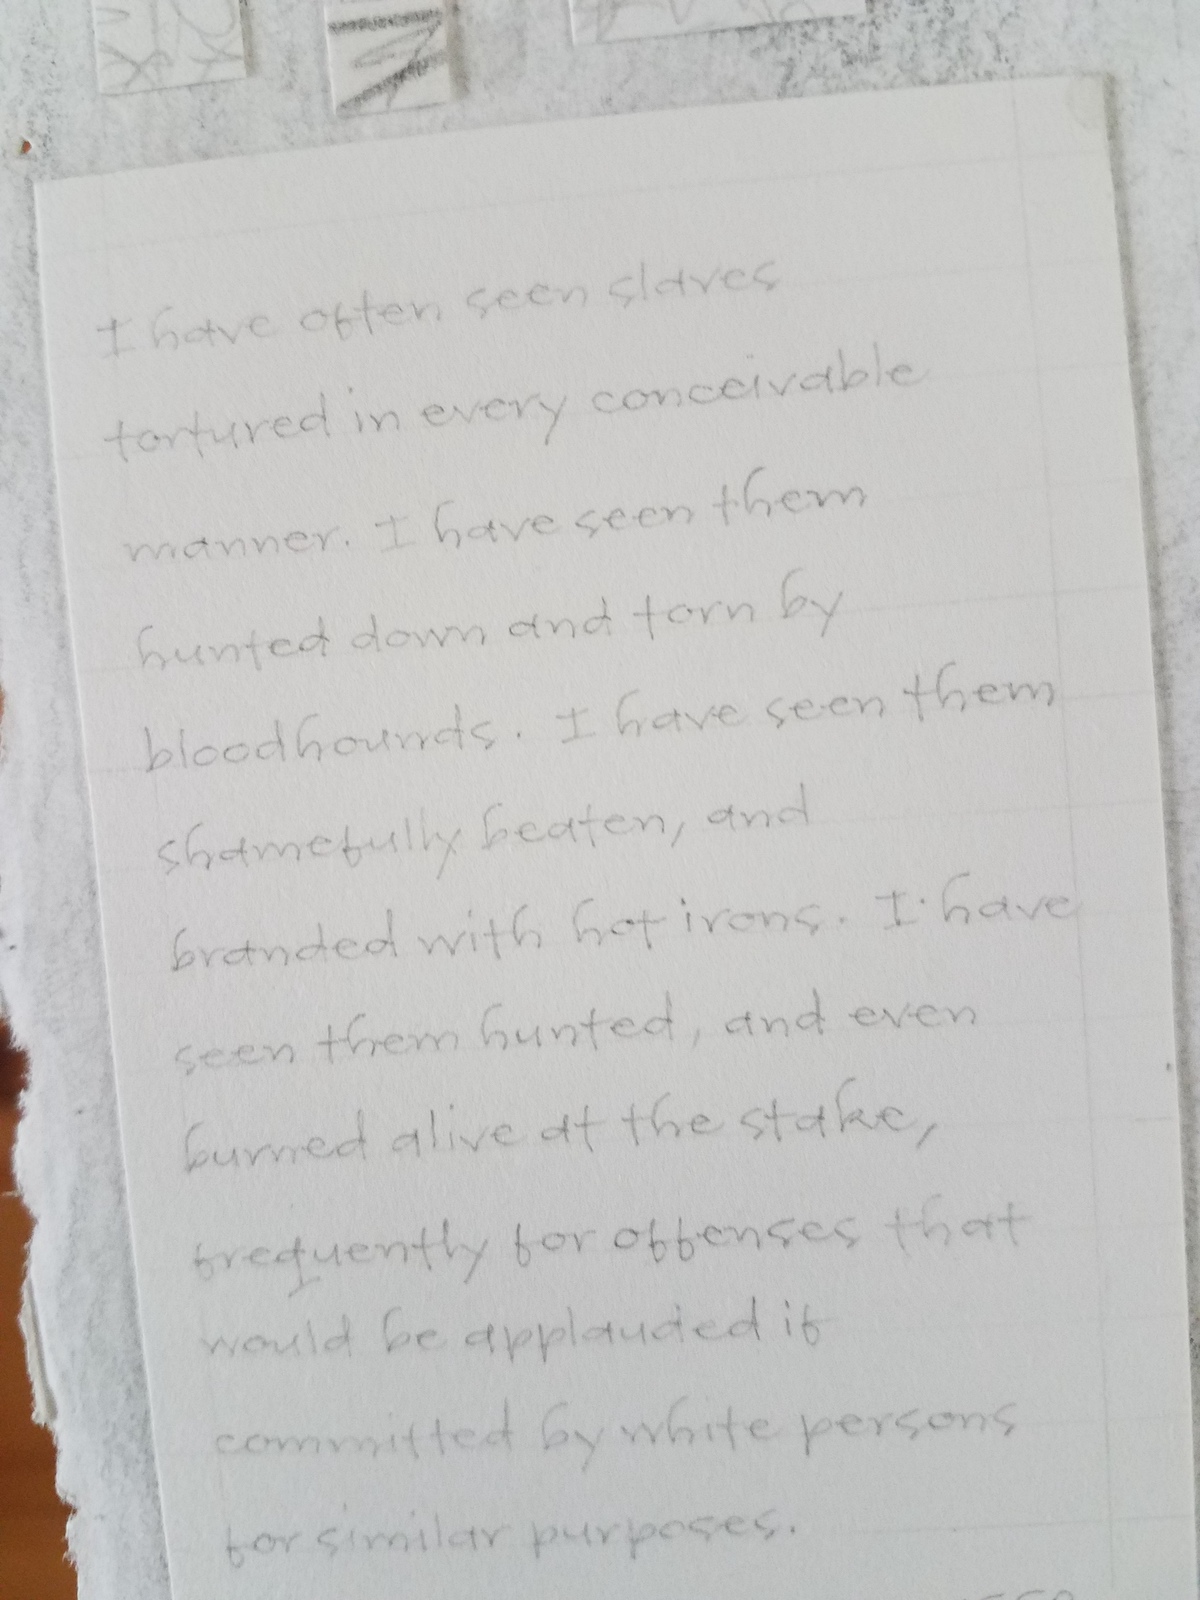 I have often seen slaves
tortured in every conceivable
manner. I have seen them
hunted down and torn by
bloodhounds. I have seen them
shamefully beaten, and
branded with hot irons. I have
seen them hunted, and even
burned alive at the stake,
frequently for offenses that
would be applauded if
committed by white persons
for similar purposes.